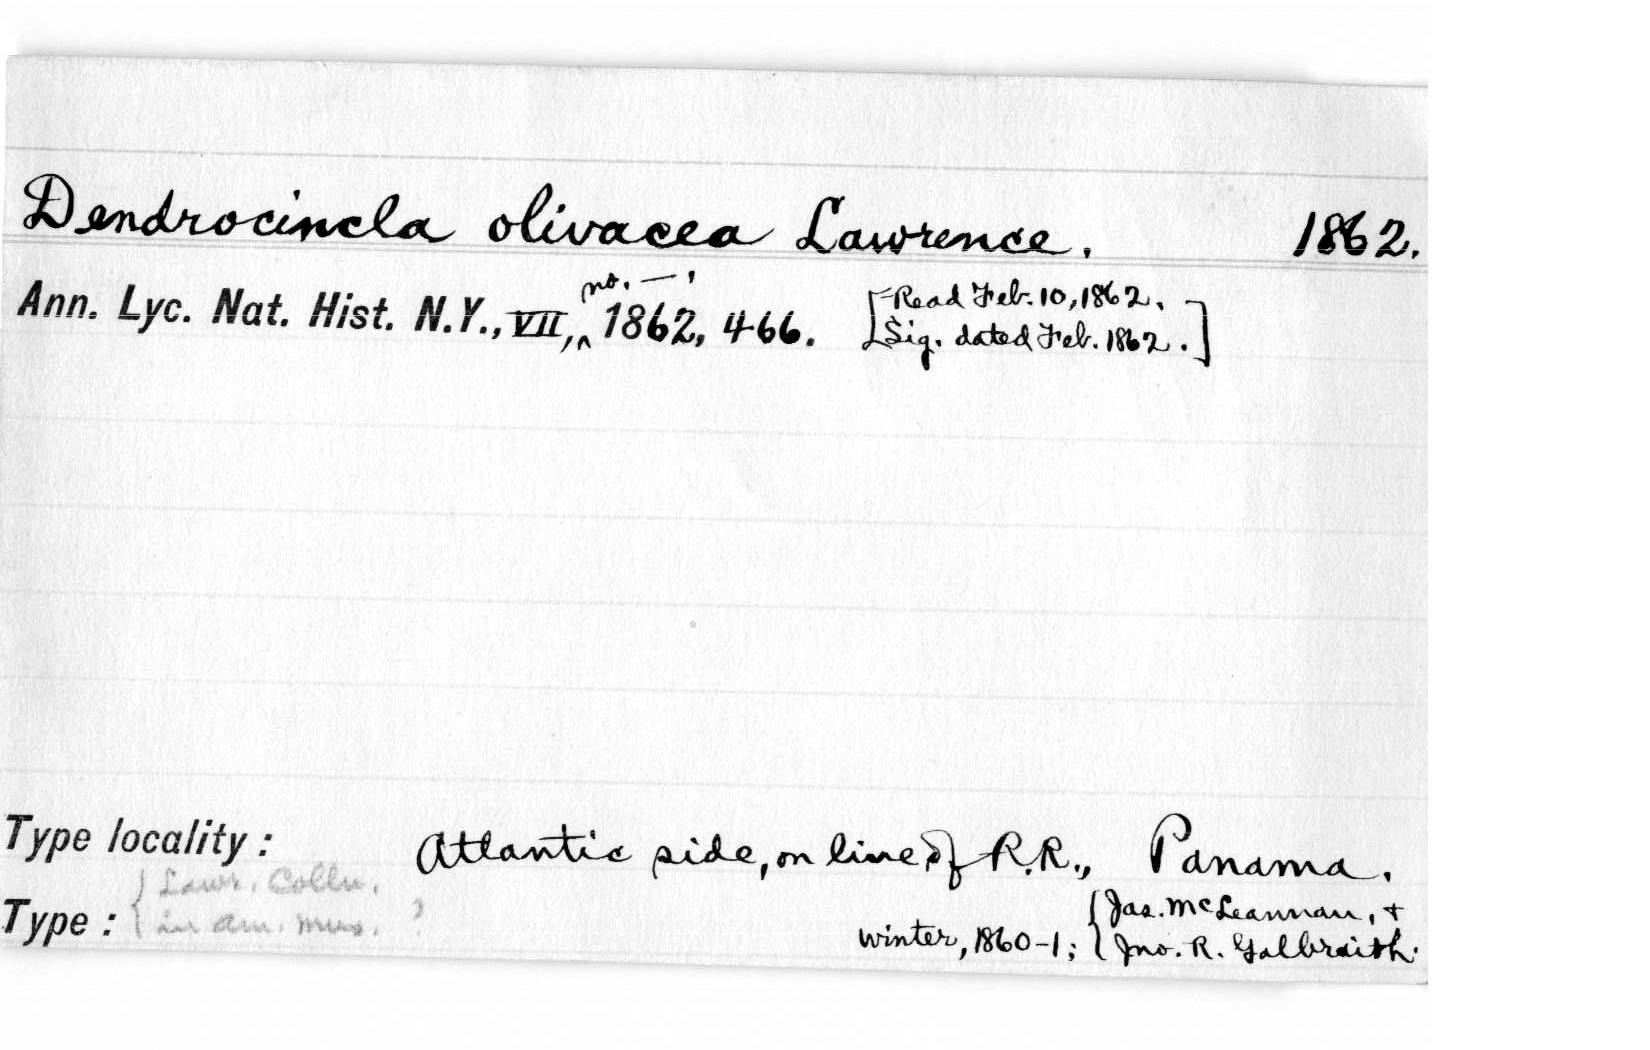 Dendrocincla olivacea Lawrence. 1862.
no. — ,
Ann. Lyc. Nat. Hist. N.Y., VII, ‸ 1862, 466. [Read Feb. 10, 1862.
Sig. dated Feb. 1862.]
Type locality: Atlantic side, on line of R.R., Panama.
{ Lawr. Colln.
Type: { in Am. Mus. ?
winter, 1860-1; { Jas. McLeannan, +
Jno. R. Galbraith.